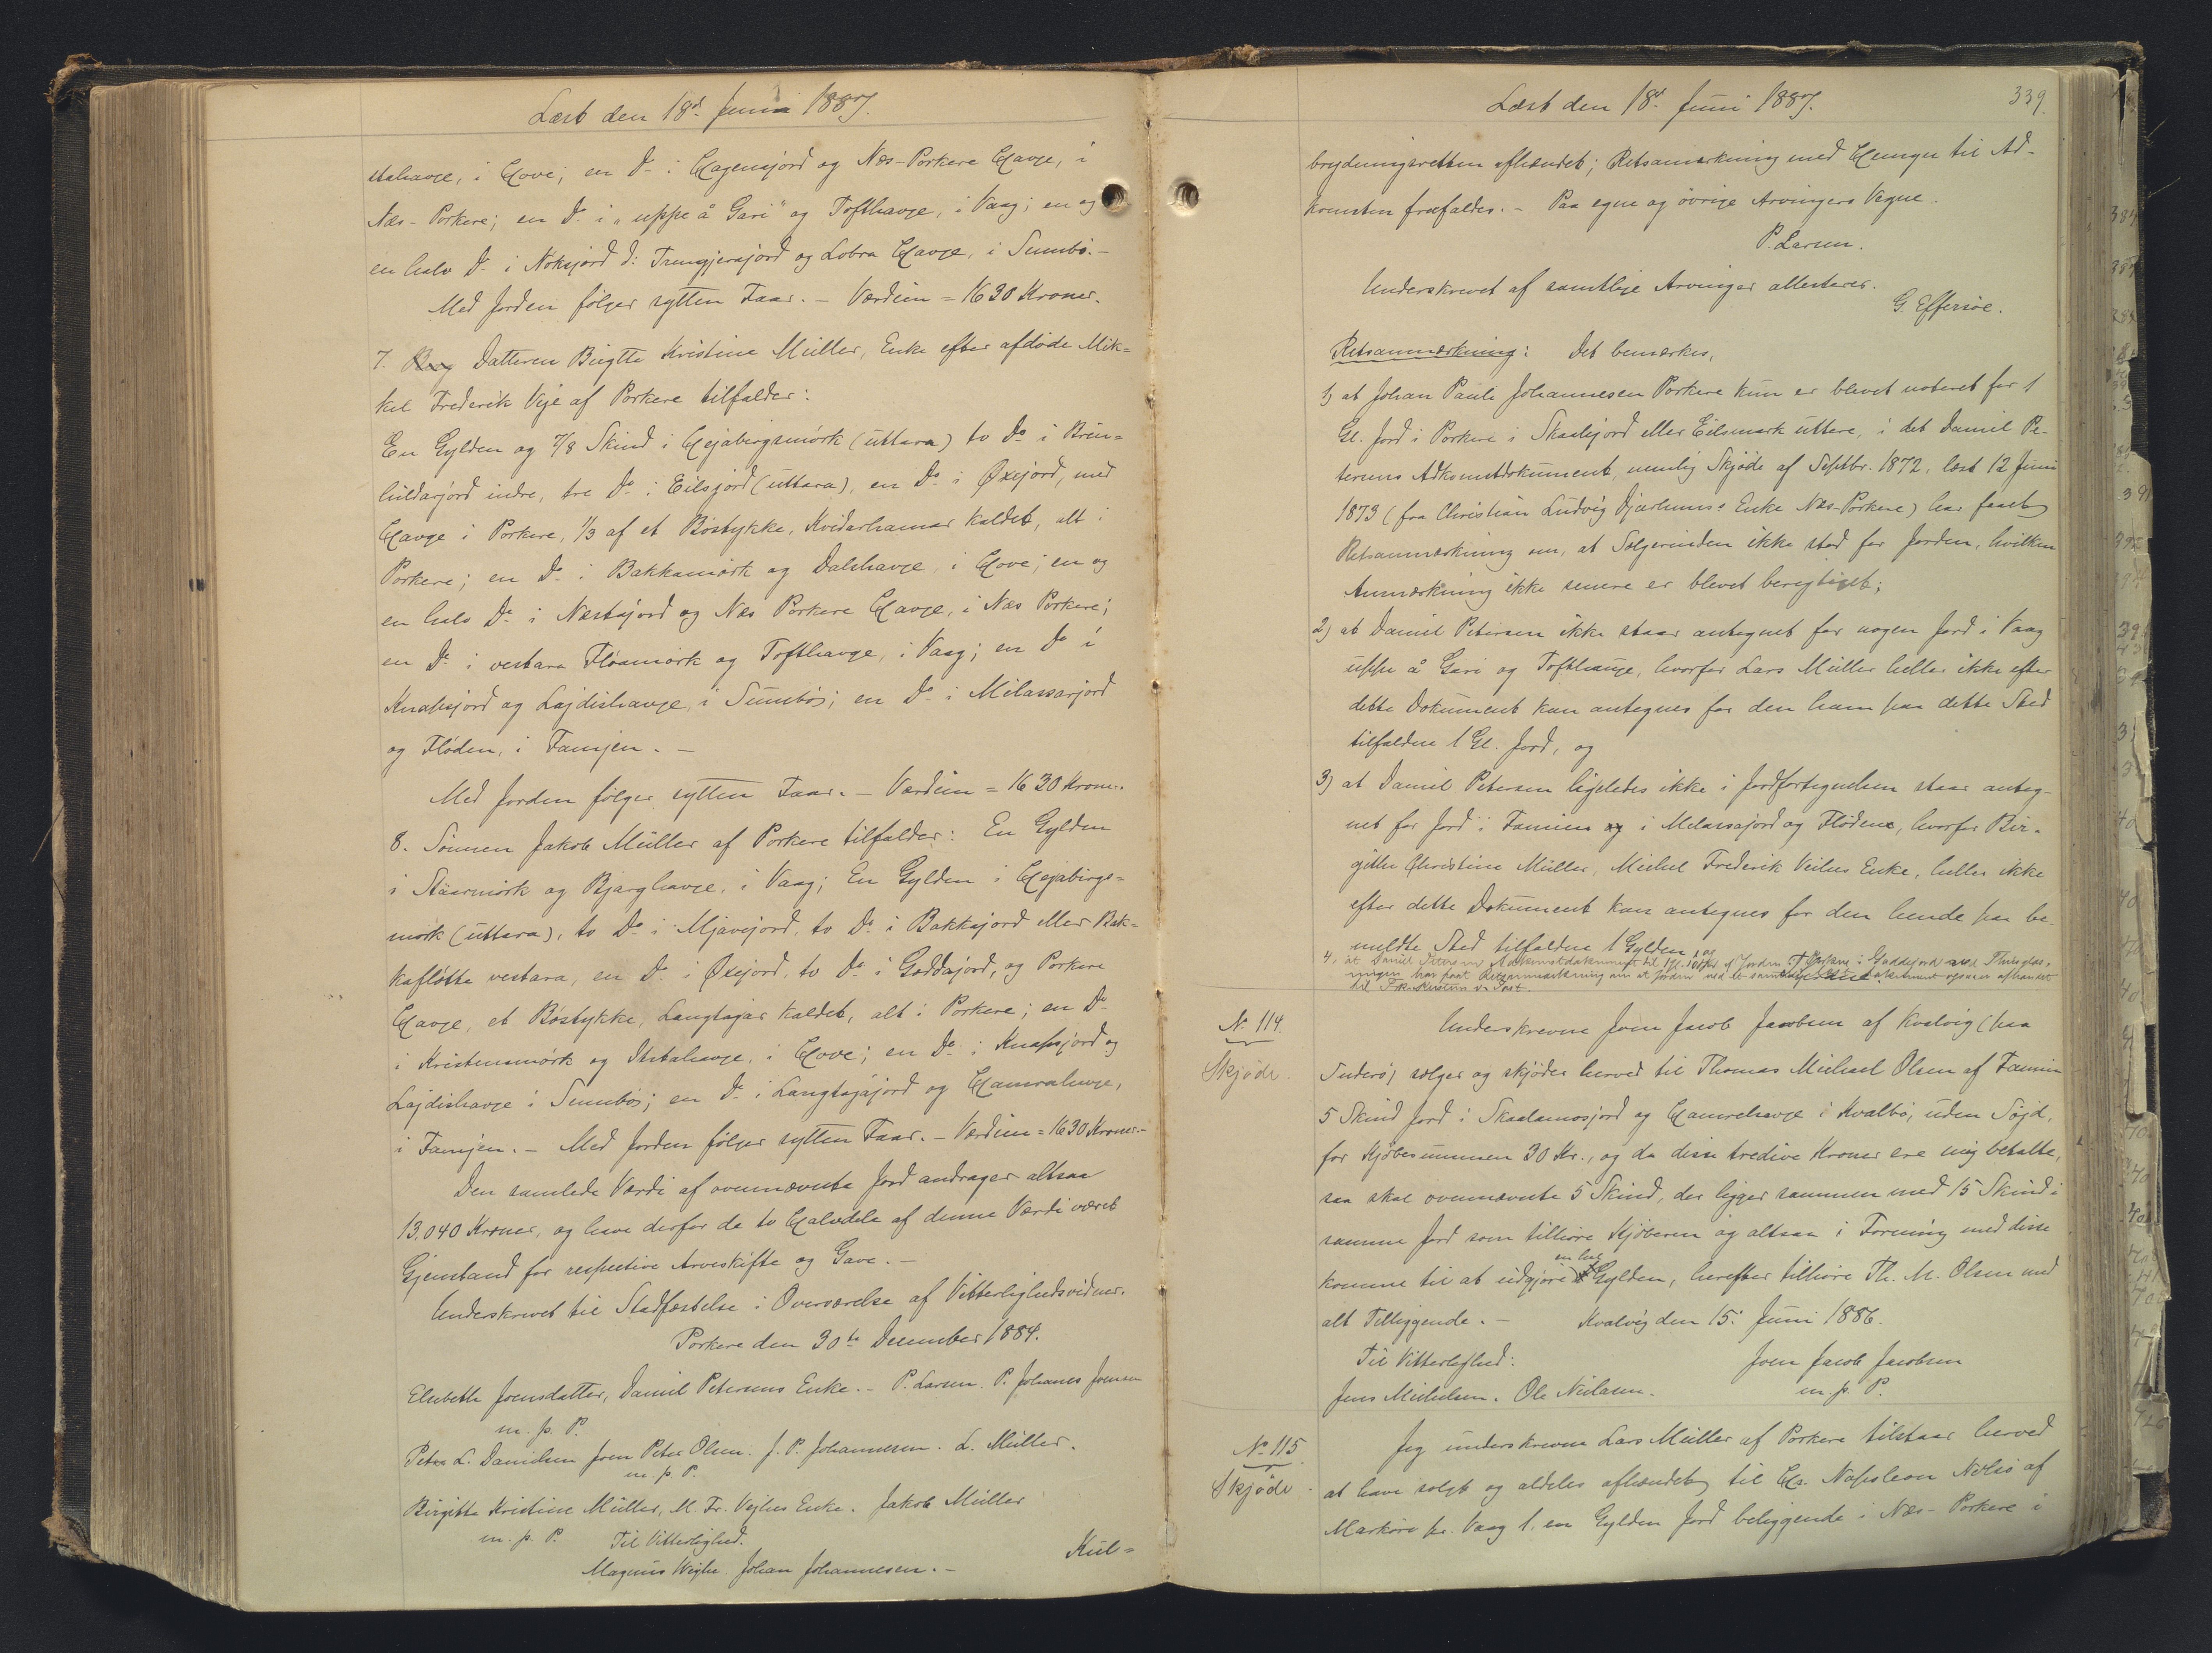 Læst den 18d Juni 1887.
stahavge, i Hove; en Do i Hagensjord og Næs-Porkere Havge, i
Næs-Porkere; en Do i "uppe å Gari" og Tofthavge, i Vaag; en og
en halv Do i Noksjord d: Trungjerajord og Lobra Havge, i Sumbö.-
Med Jorden følger sytten Faar. - Værdien = 1630 Kroner.
7. Datteren Birgitte Kristine Müller, Enke efter afdøde Mik=
kel Frederik Veje af Porkere tilfalder:
En Gylden og 7/8 Skind i Hejabergsmörk (uttara) to Do i Brin=
huldarjord indre, tre Do i Eilsjord (uttara), en Do i Øxejord, med
Havge i Porkere, 1/3 af et Böstykke, Kvidarhamar kaldet, alt i
Porkere; en Do i Bakkamörk og Dalshavge, i Hove; en og
en halv Do i Nestajord og Næs Porkere Havge, i Næs Porkere;
en Do i vestara Flösamörk og Tofthavge, i Vaag; en Do i
Knapsjord og Lajdishavge, i Sumbö; en Do i Milassarjord
og Flöden, i Famjen. -
Med Jorden følger sytten Faar. - Værdien = 1630 Kroner.
8. Sönnen Jakob Müller af Porkere tilfalder: En Gylden
i Stäarmörk og Bjarghavge, i Vaag; En Gylden i Hejabirgs=
mörk (uttara), to Do i Mjávejord, to Do i Bakkajord eller Bak=
kaflötte vestara, en Do i Øxejord, to Do i Gaddajord, og Porkere
Havge, et Böstykke, Langtajar kaldet, alt i Porkere; en Do
i Kristensmörk og Stutahavge, i Hove; en Do i Knapsjord og
Lajdishavge i Sumbö; en Do i Langtajajord og Hamrahavge,
i Famjen. - Med Jorden følger sytten Faar. - Værdien = 1630 Kroner.-
Den samlede Værdi af ovennævnte Jord andrager altsaa
13,040 Kroner, og have derfor de to Halvdele af denne Værdi været
Gjenstand for respective Arveskifte og Gave. -
Underskrevet til Stadfæstelse i Overværelse af Vitterlighedsvidner.
Porkere den 30te December 1884.
Elsebeth Joensdatter, Daniel Petersens Enke. - P. Larsen. P. Johannes Joensen
m. p. P.
Peter L. Danielsen Joen Peter Olsen. J. P. Johannesen. L. Müller.
m. p. P.
Birgitte Kristine Müller, M. Fr. Vejhes Enke. Jakob Müller
m. p. P. Til Vitterlighed.
Magnus Weyhe. Johan Johannesen. -
Kul=
Læst den 18d Juni 1887.
339.
brydningsretten afhændet; Retsanmærkning med Hensyn til Ad-
komsten frafaldes. - Paa egne og övrige Arvingers Vegne.
P. Larsen.
Underskrevet af samtlige Arvinger attesteres.
G. Effersöe.
Retsanmærkning: Det bemærkes,
1) at Johan Pauli Johannesen Porkere kun er blevet noteret for 1
Gl. Jord i Porkere i Skaalejord eller Eilsmark uttere, i det Daniel Pe-
tersens Adkomstdokument, nemlig Skjøde af Septbr. 1872, læst 12 Juni
1873 (fra Christian Ludvig Djurhuus's Enke Næs-Porkere) har faaet
Retsanmærkning om, at Sælgerinden ikke stod for Jorden, hvilken
Anmærkning ikke senere er blevet berigtiget;
2) at Daniel Petersen ikke staar antegnet for nogen Jord i Vaag
uppe å Gari og Tofthauge, hvorfor Lars Müller heller ikke efter
dette Dokument kan antegnes for den ham paa dette Sted
tilfaldne 1 Gl. Jord, og
3) at Daniel Petersen ligeledes ikke i Jordfortegnelsen staar anteg-
net for Jord i Famien i Milassajord og Flödene, hvorfor Bir-
gitte Christine Müller, Michel Frederik Veihes Enke, heller ikke
efter dette Dokument kan antegnes for den hende paa be-
meldte Sted tilfaldne 1 Gylden, og
4, at Daniel Petersens Adkomstdokument til 1 Gl. af Jorden i Porkere i Gaddejord
ningen har faaet Retsanmærkning om at Jorden ved et Dokument ogsaa er afhændet
til Frk.
No 114.
Skjöde.
Underskrevne Joen Jacob Jacobsen af Kvalvig (paa
Suderö) sælger og skjöder herved til Thomas Michael Olsen af Famien
5 Skind Jord i Skaalamosjord og Hamrehavge i Kvalbö, uden Söjd,
for Kjöbesummen 30 Kr., og da disse tredive Kroner ere mig betalte,
saa skal ovennævnte 5 Skind, der ligger sammen med 15 Skind i
samme Jord som tilhöre Kjöberen og altsaa i Forening med disse
en hel
komme til at udgjöre Gylden, herefter tilhöre Th. M. Olsen med
alt Tilliggende. - Kvalvig den 15. Juni 1886.
Til Vitterlighed: Joen Jacob Jacobsen
Jens Michelsen. Ole Nielsen. m. p. P.
No 115
Skjöde.
Jeg underskrevne Lars Müller af Porkere tilstaar herved
at have solgt og aldeles afhændet til Hr. Napoleon Nolsö af
Marköre pr. Vaag 1. en Gylden Jord beliggende i Næs-Porkere i